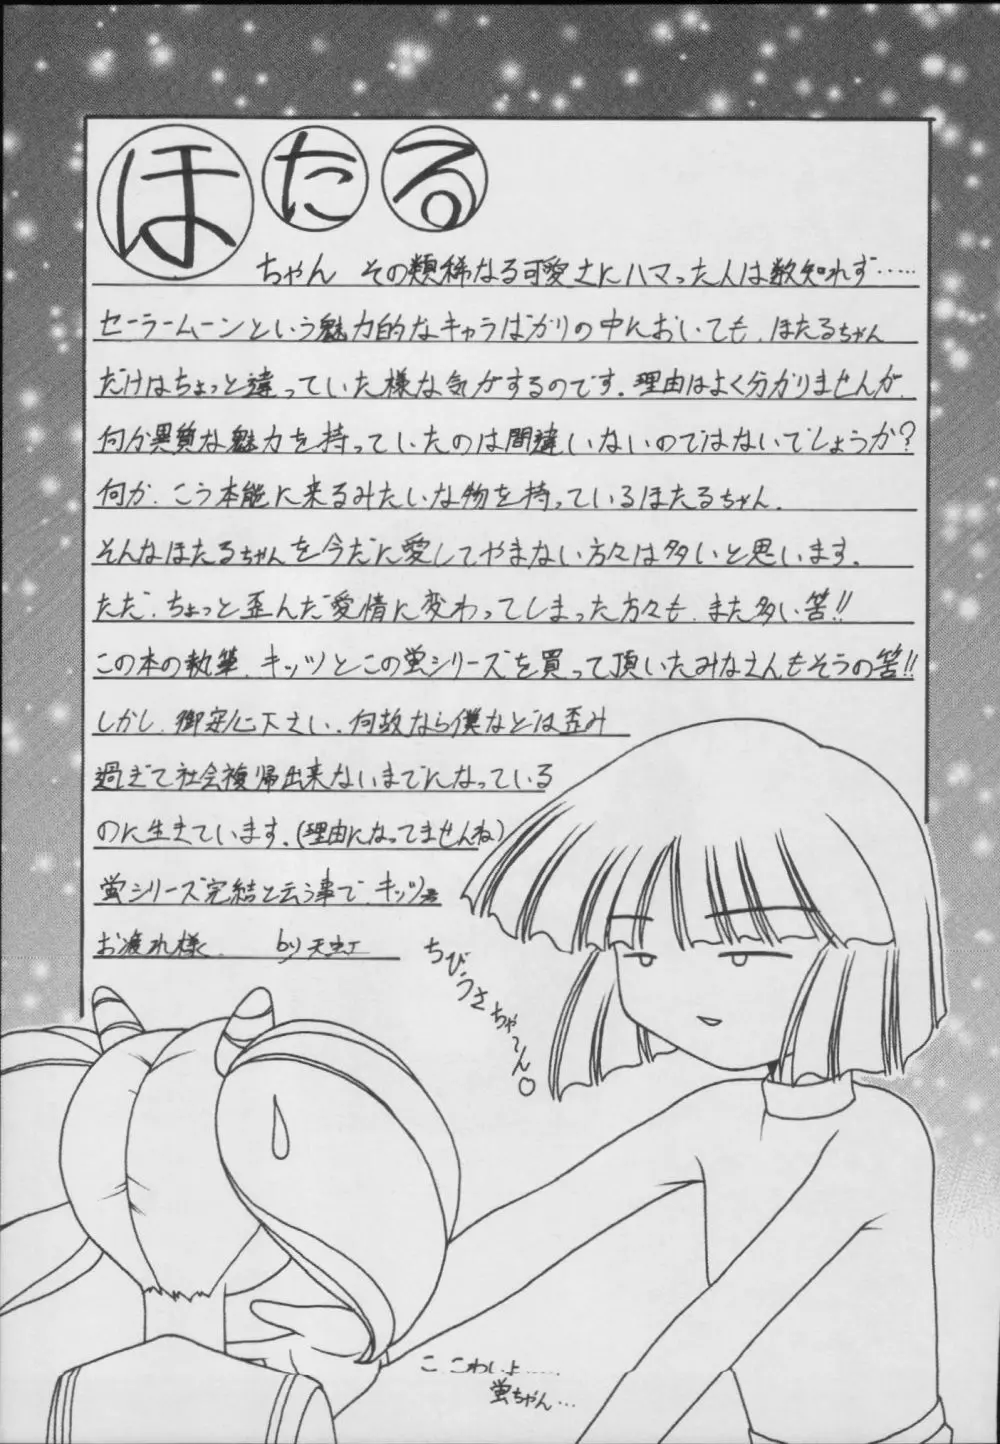 ほたる
ちゃん その類稀なる可愛さにハマった人は数知れず……
セーラームーンという魅力的なキャラばかりの中においても、ほたるちゃん
だけはちょっと違っていた様な気がするのです。理由はよく分かりませんが、
何か異質な魅力を持っていたのは間違いないのではないでしょうか？
何か、こう本能に来るみたいな物を持っているほたるちゃん、
そんなほたるちゃんを今だに愛してやまない方々は多いと思います。
ただ、ちょっと歪んだ愛情に変わってしまった方々も、また多い筈!!
この本の執筆、キッツとこの蛍シリーズを買って頂いたみなさんもそうの筈!!
しかし、御安心下さい、何故なら僕などは歪み
過ぎて社会復帰出来ないまでになっている
のに生きています。(理由になってませんね)
蛍シリーズ完結と云う事で、キッツ
お疲れ様、 by 天虹
ちびうさちゃ〜ん♡
こ、こわいよ……
蛍ちゃん…